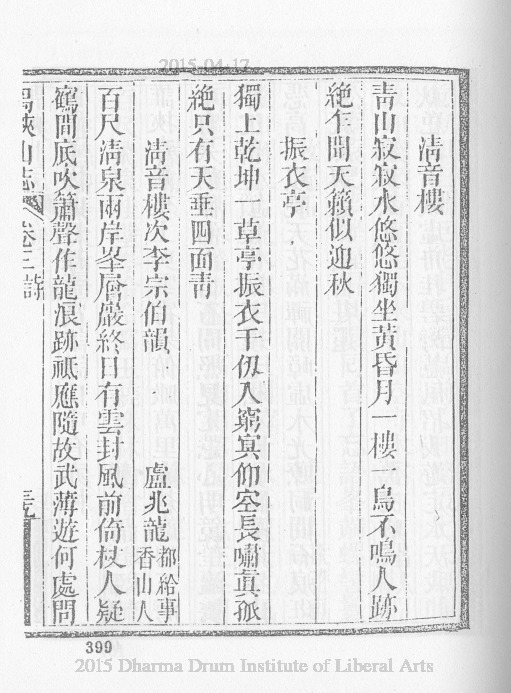 2015-04-17
清音樓
青山寂寂水悠悠獨坐黃昏月一樓一鳥不鳴人跡
絶乍聞天籟似迎秋
振衣亭
獨上乾坤一草亭振衣千仭入窮冥仰空長嘯眞孤
絶只有天垂四面靑
清音樓次李宗伯韻 盧兆龍 都給事香山人
百尺淸泉兩岸峯層巖終日有雲封風前倚杖人疑
鶴間底吹簫聲作龍浪跡祗應隨故武薄遊何處問
峽山志 卷三 詩
399
2015 Dharma Drum Institute of Liberal Arts